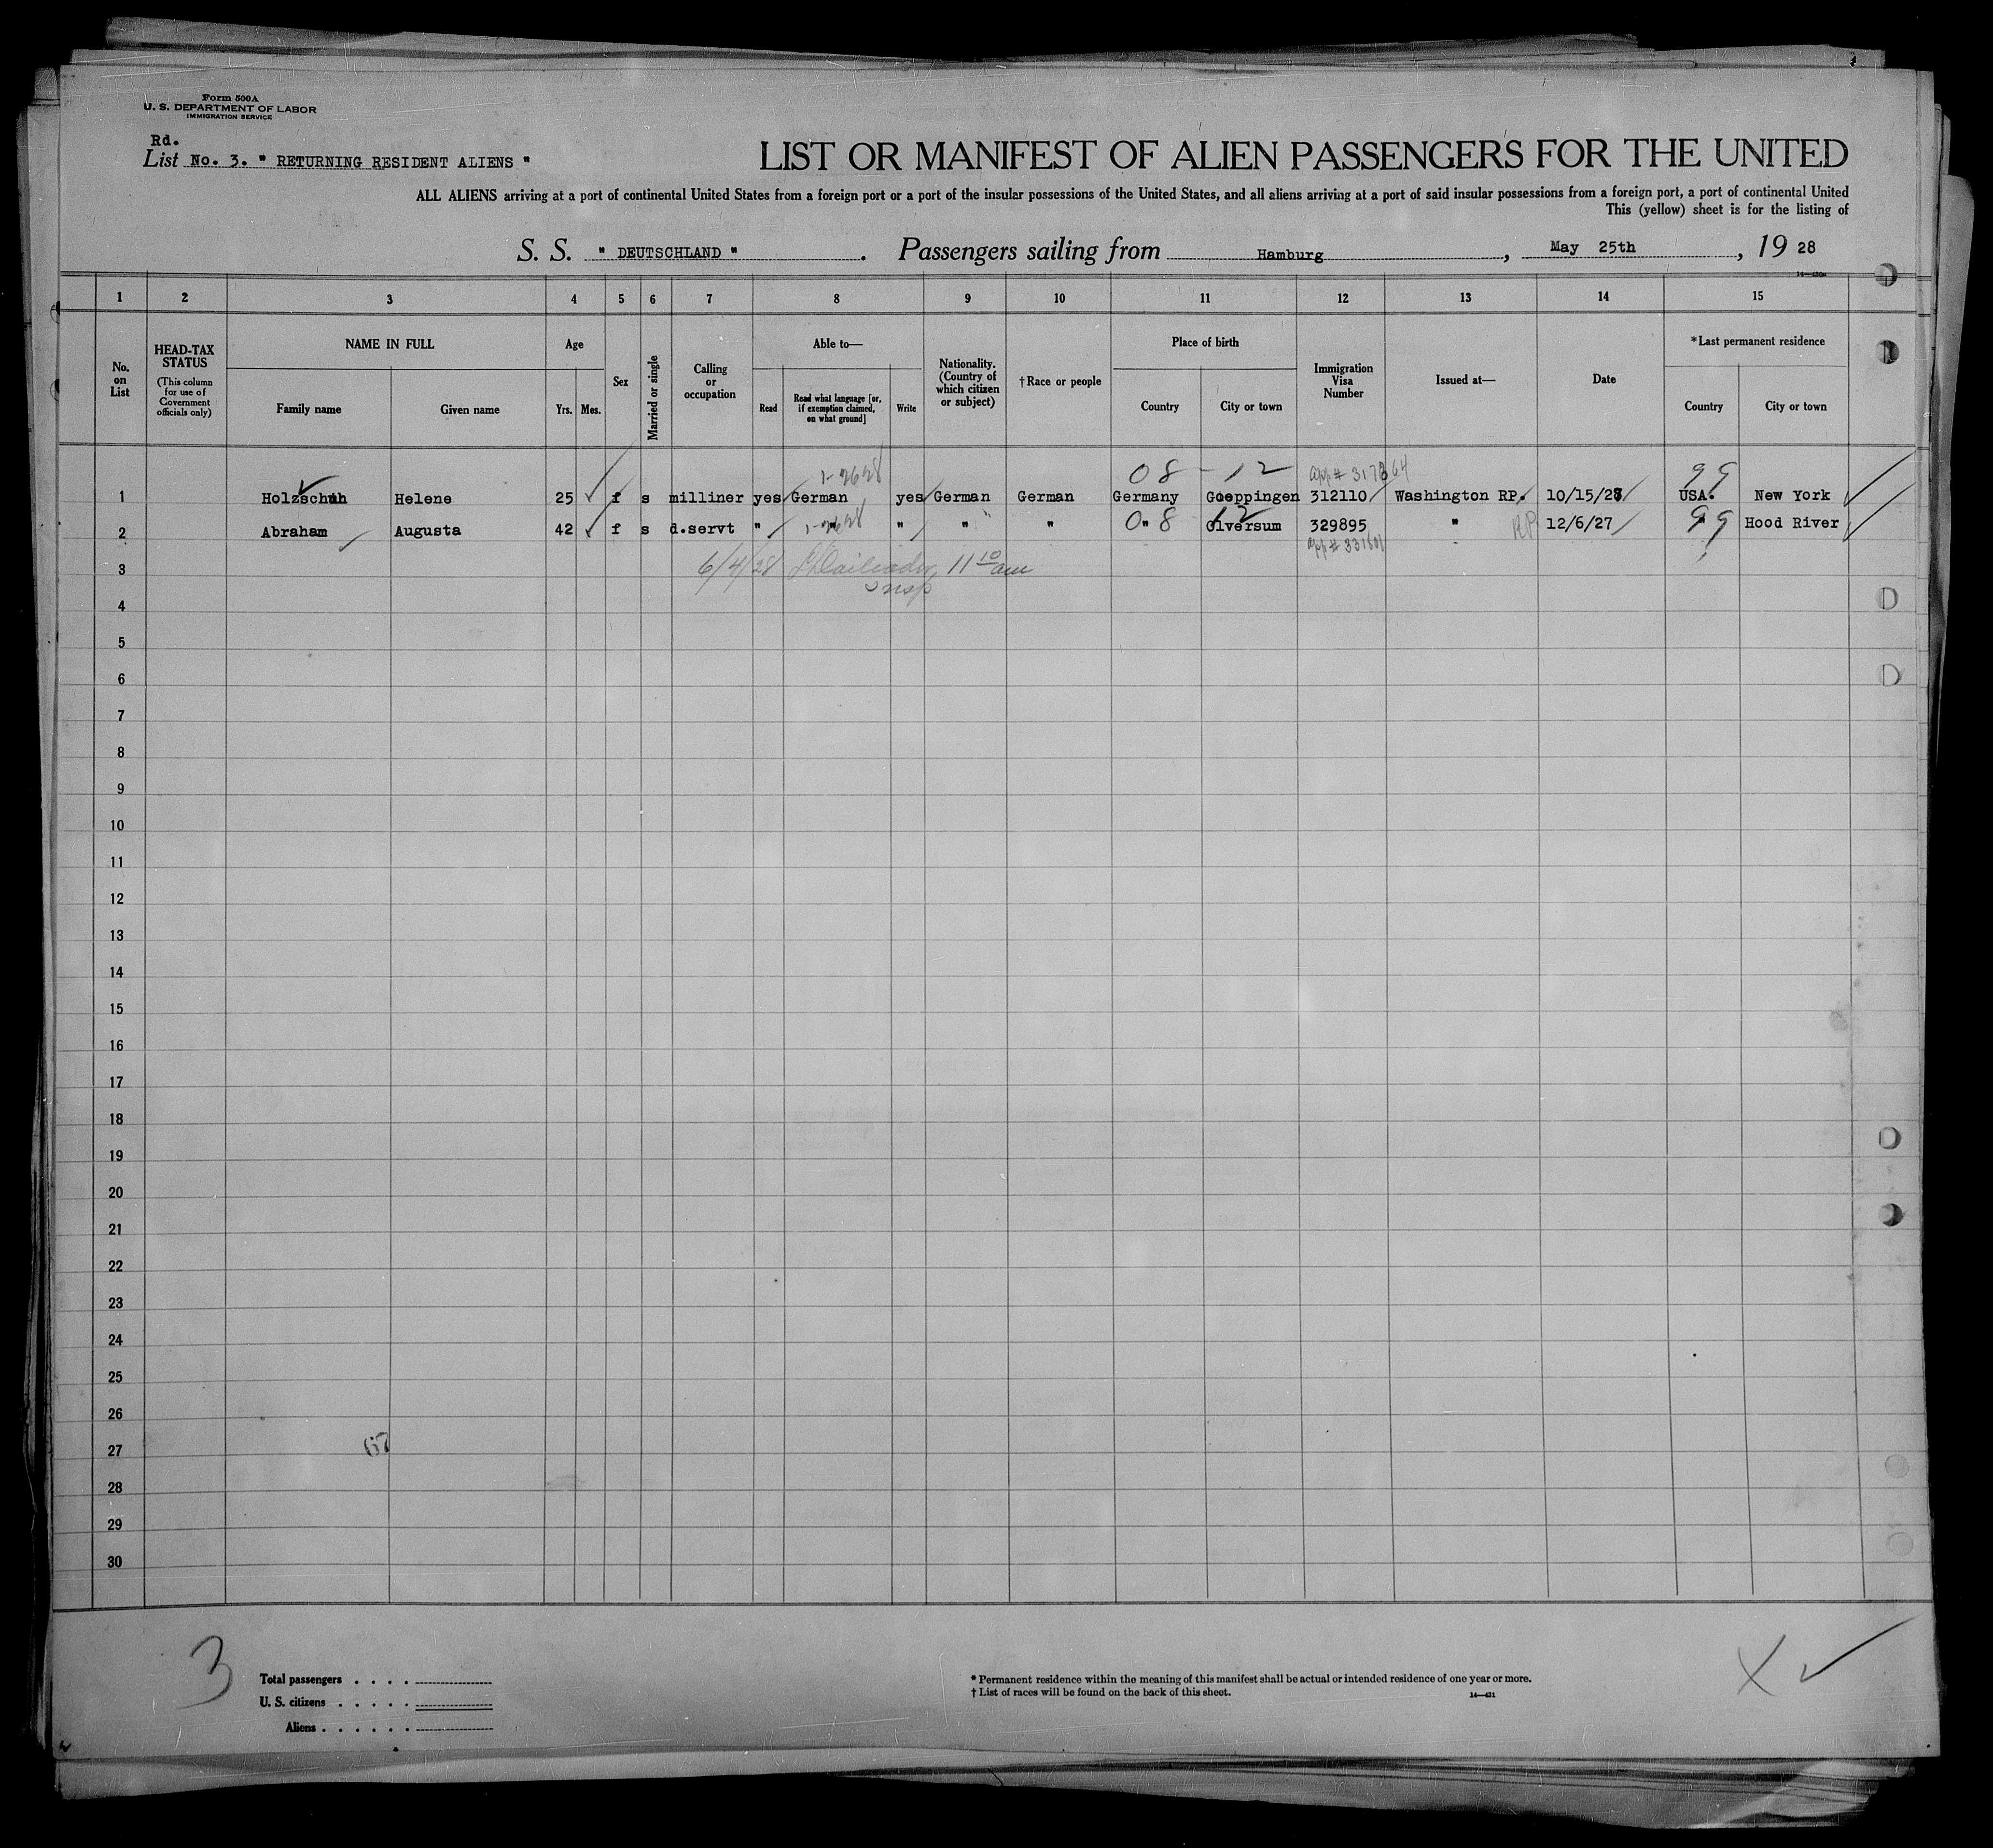 Form 500A
U. S. DEPARTMENT OF LABOR
IMMIGRATION SERVICE
Rd.
List No. 3. " RETURNING RESIDENT ALIENS "
LIST OR MANIFEST OF ALIEN PASSENGERS FOR THE UNITED
ALL ALIENS arriving at a port of continental United States from a foreign port or a port of the insular possessions of the United States, and all aliens arriving at a port of said insular possessions from a foreign port, a port of continental United
This (yellow) sheet is for the listing of
S. S. " DEUTSCHLAND " . Passengers sailing from Hamburg , May 25th , 19 28
1 2 3 4 5 6 7 8 9 10 11 12 13 14 15
No. on List
HEAD-TAX STATUS
(This column for use of Government officials only)
NAME IN FULL
Family name Given name
Age
Yrs. Mos.
Sex
Married or single
Calling or occupation
Able to—
Read Read what language [or, if exemption claimed, on what ground] Write
Nationality. (Country of which citizen or subject)
† Race or people
Place of birth
Country City or town
Immigration Visa Number
Issued at—
Date
* Last permanent residence
Country City or town
08 - 12 99
1 Holzschuh Helene 25 f s milliner yes German yes German German Germany Goeppingen 312110 Washington RP. 10/15/27 USA. New York
2 Abraham Augusta 42 f s d.servt " " " " " " Olversum 329895 " RP 12/6/27 " Hood River
08 12 99
3 6/4/28 11 10 am
Insp
4
5
6
7
8
9
10
11
12
13
14
15
16
17
18
19
20
21
22
23
24
25
26
27
28
29
30
3
Total passengers . . . .
U. S. citizens . . . . .
Aliens . . . . . .
* Permanent residence within the meaning of this manifest shall be actual or intended residence of one year or more.
† List of races will be found on the back of this sheet.
14—421
X